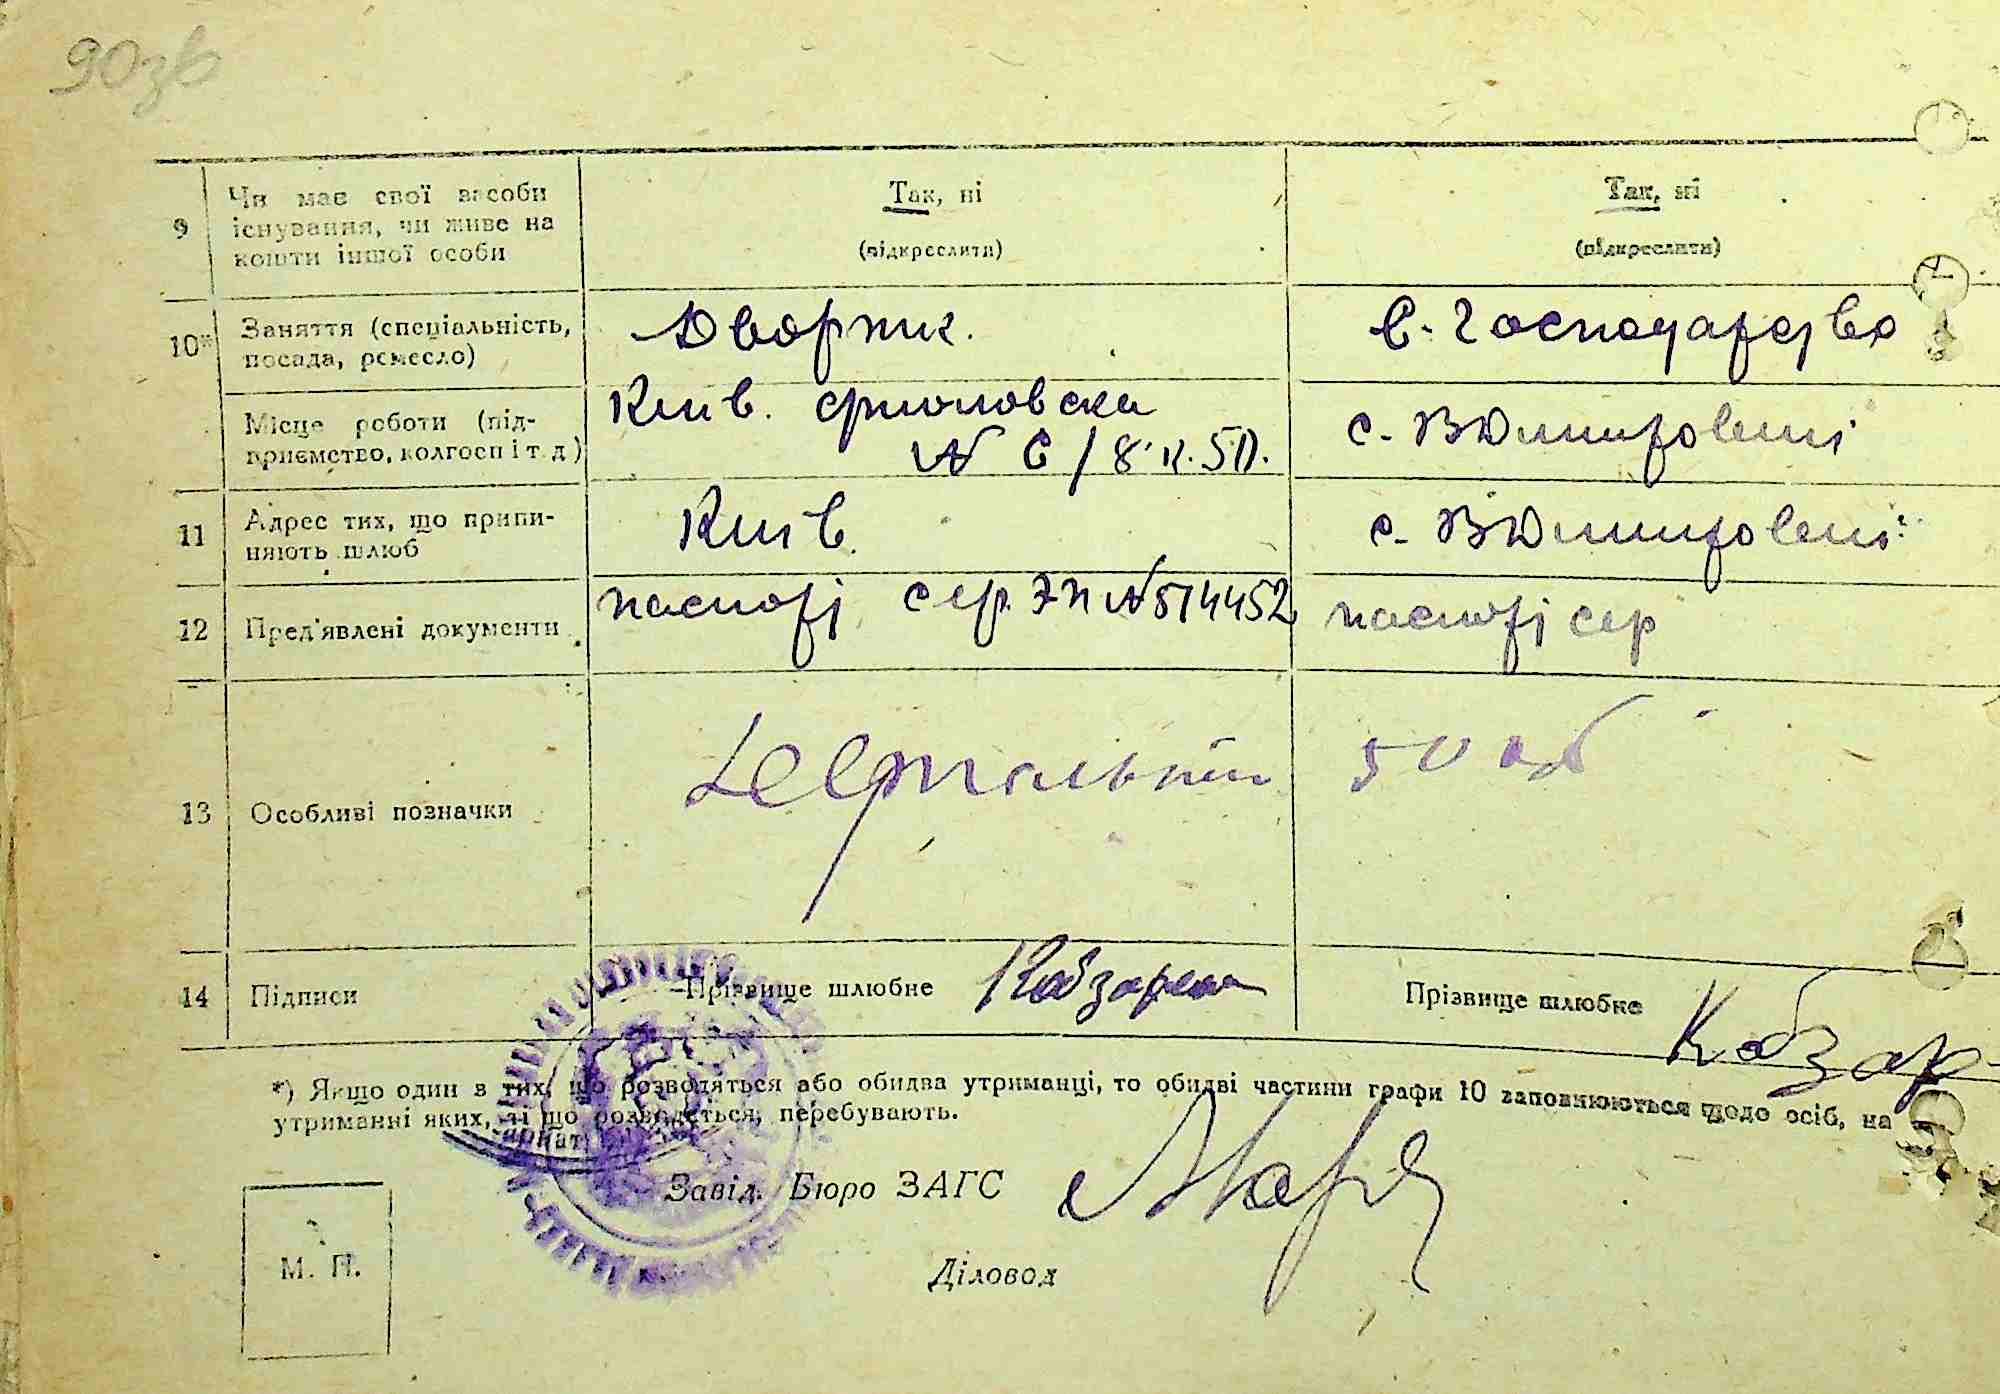 90зв
9 Чи має свої засоби Так, ні Так, ні
існування, чи живе на
кошти іншої особи (підкреслити) (підкреслити)
10* Заняття (спеціальність, Дворник. С. Господарство
посада, ремесло)
Місце роботи (під- Київ.
приємство, колгосп і т. д.) № 6/8 к. 50. с.
11 Адрес тих, що припи- Київ. с.
няють шлюб
12 Пред'явлені документи паспорт сер. ЭП № 514452 паспорт сер
13 Особливі позначки 50
14 Підписи Прізвище шлюбне Кобзарем Прізвище шлюбне Кобзар
*) Якщо один з тих, що розводяться або обидва утриманці, то обидві частини графи 10 заповнюються щодо осіб, на
утриманні яких, ті що розводяться, перебувають.
Завід. Бюро ЗАГС
М. П.
Діловод